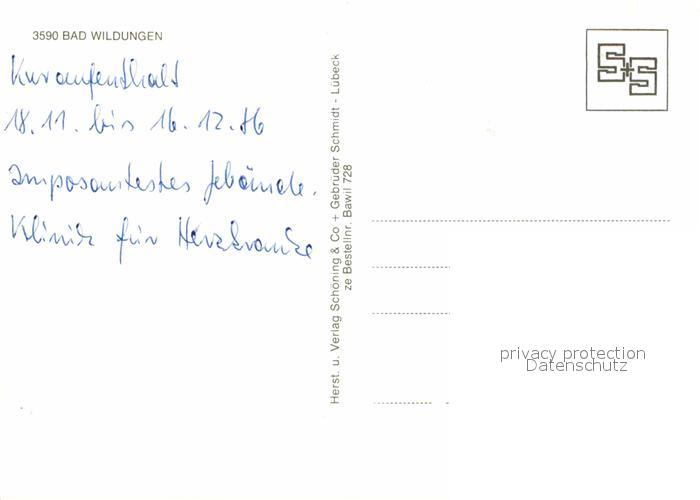 3590 BAD WILDUNGEN
Kuraufenthalt
18.11. bis 16.12.86
Imposantestes Gebäude.
Klinik für Herzkranke
Herst. u. Verlag Schöning & Co + Gebrüder Schmidt - Lübeck
ze Bestellnr. Bawil 728
S+S
privacy protection
Datenschutz